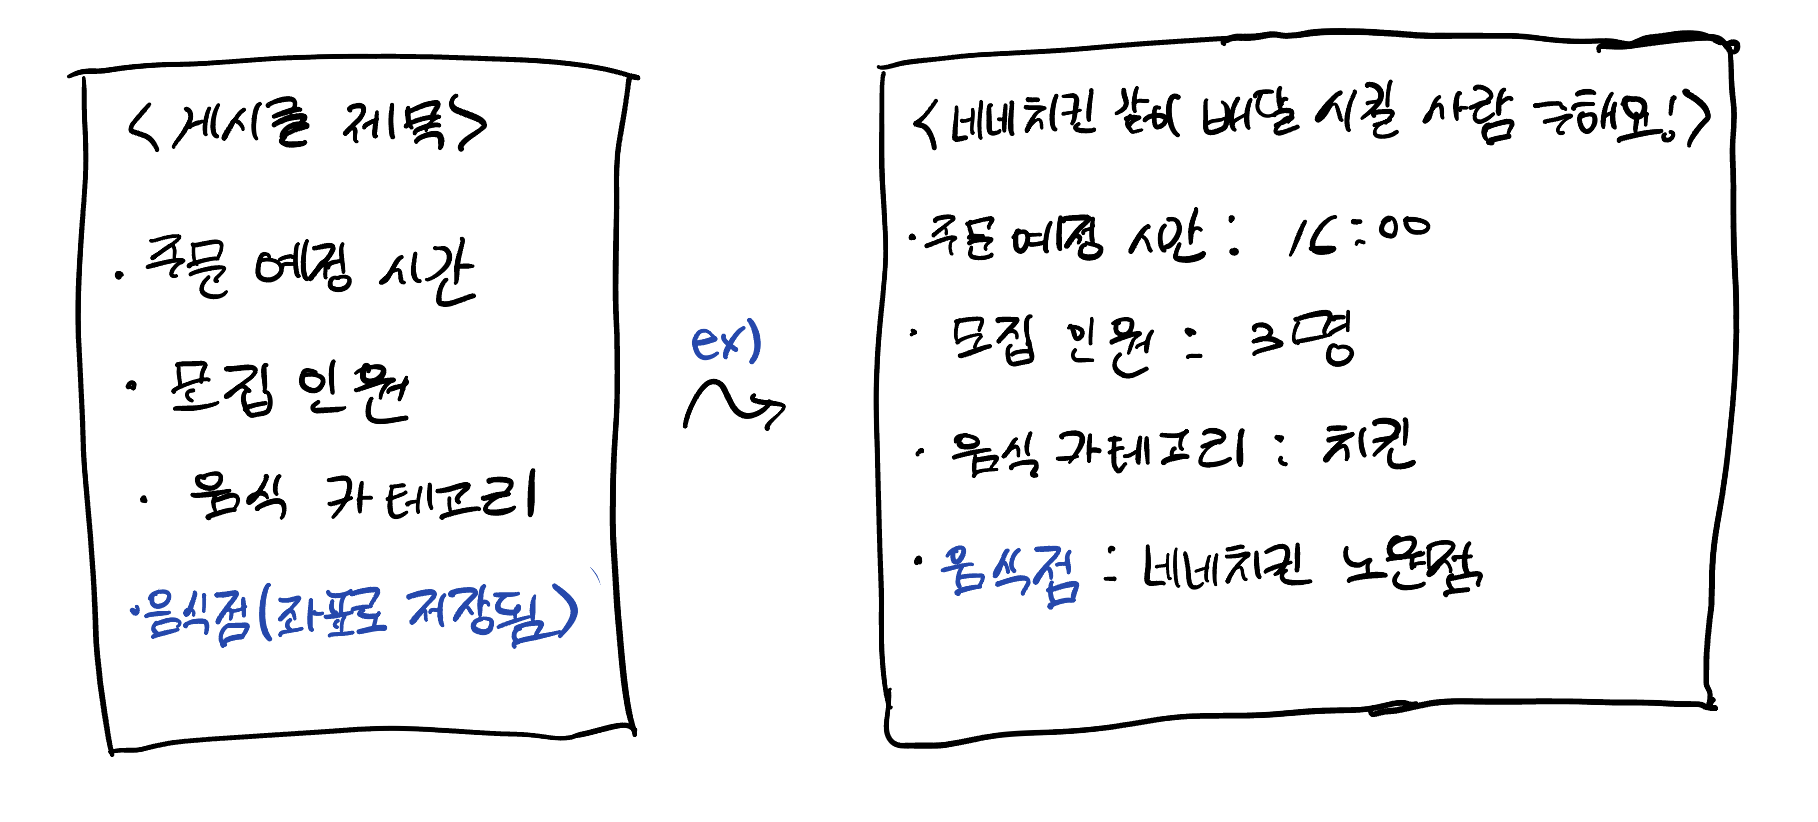 <게시글 제목>
· 주문 예정 시간
· 모집 인원
· 음식 카테고리
· 음식점(좌표로 저장됨)
ex)
<네네치킨 같이 배달 시킬 사람 구해요!>
· 주문 예정 시간 : 16:00
· 모집 인원 : 3명
· 음식 카테고리 : 치킨
· 음식점 : 네네치킨 노원점